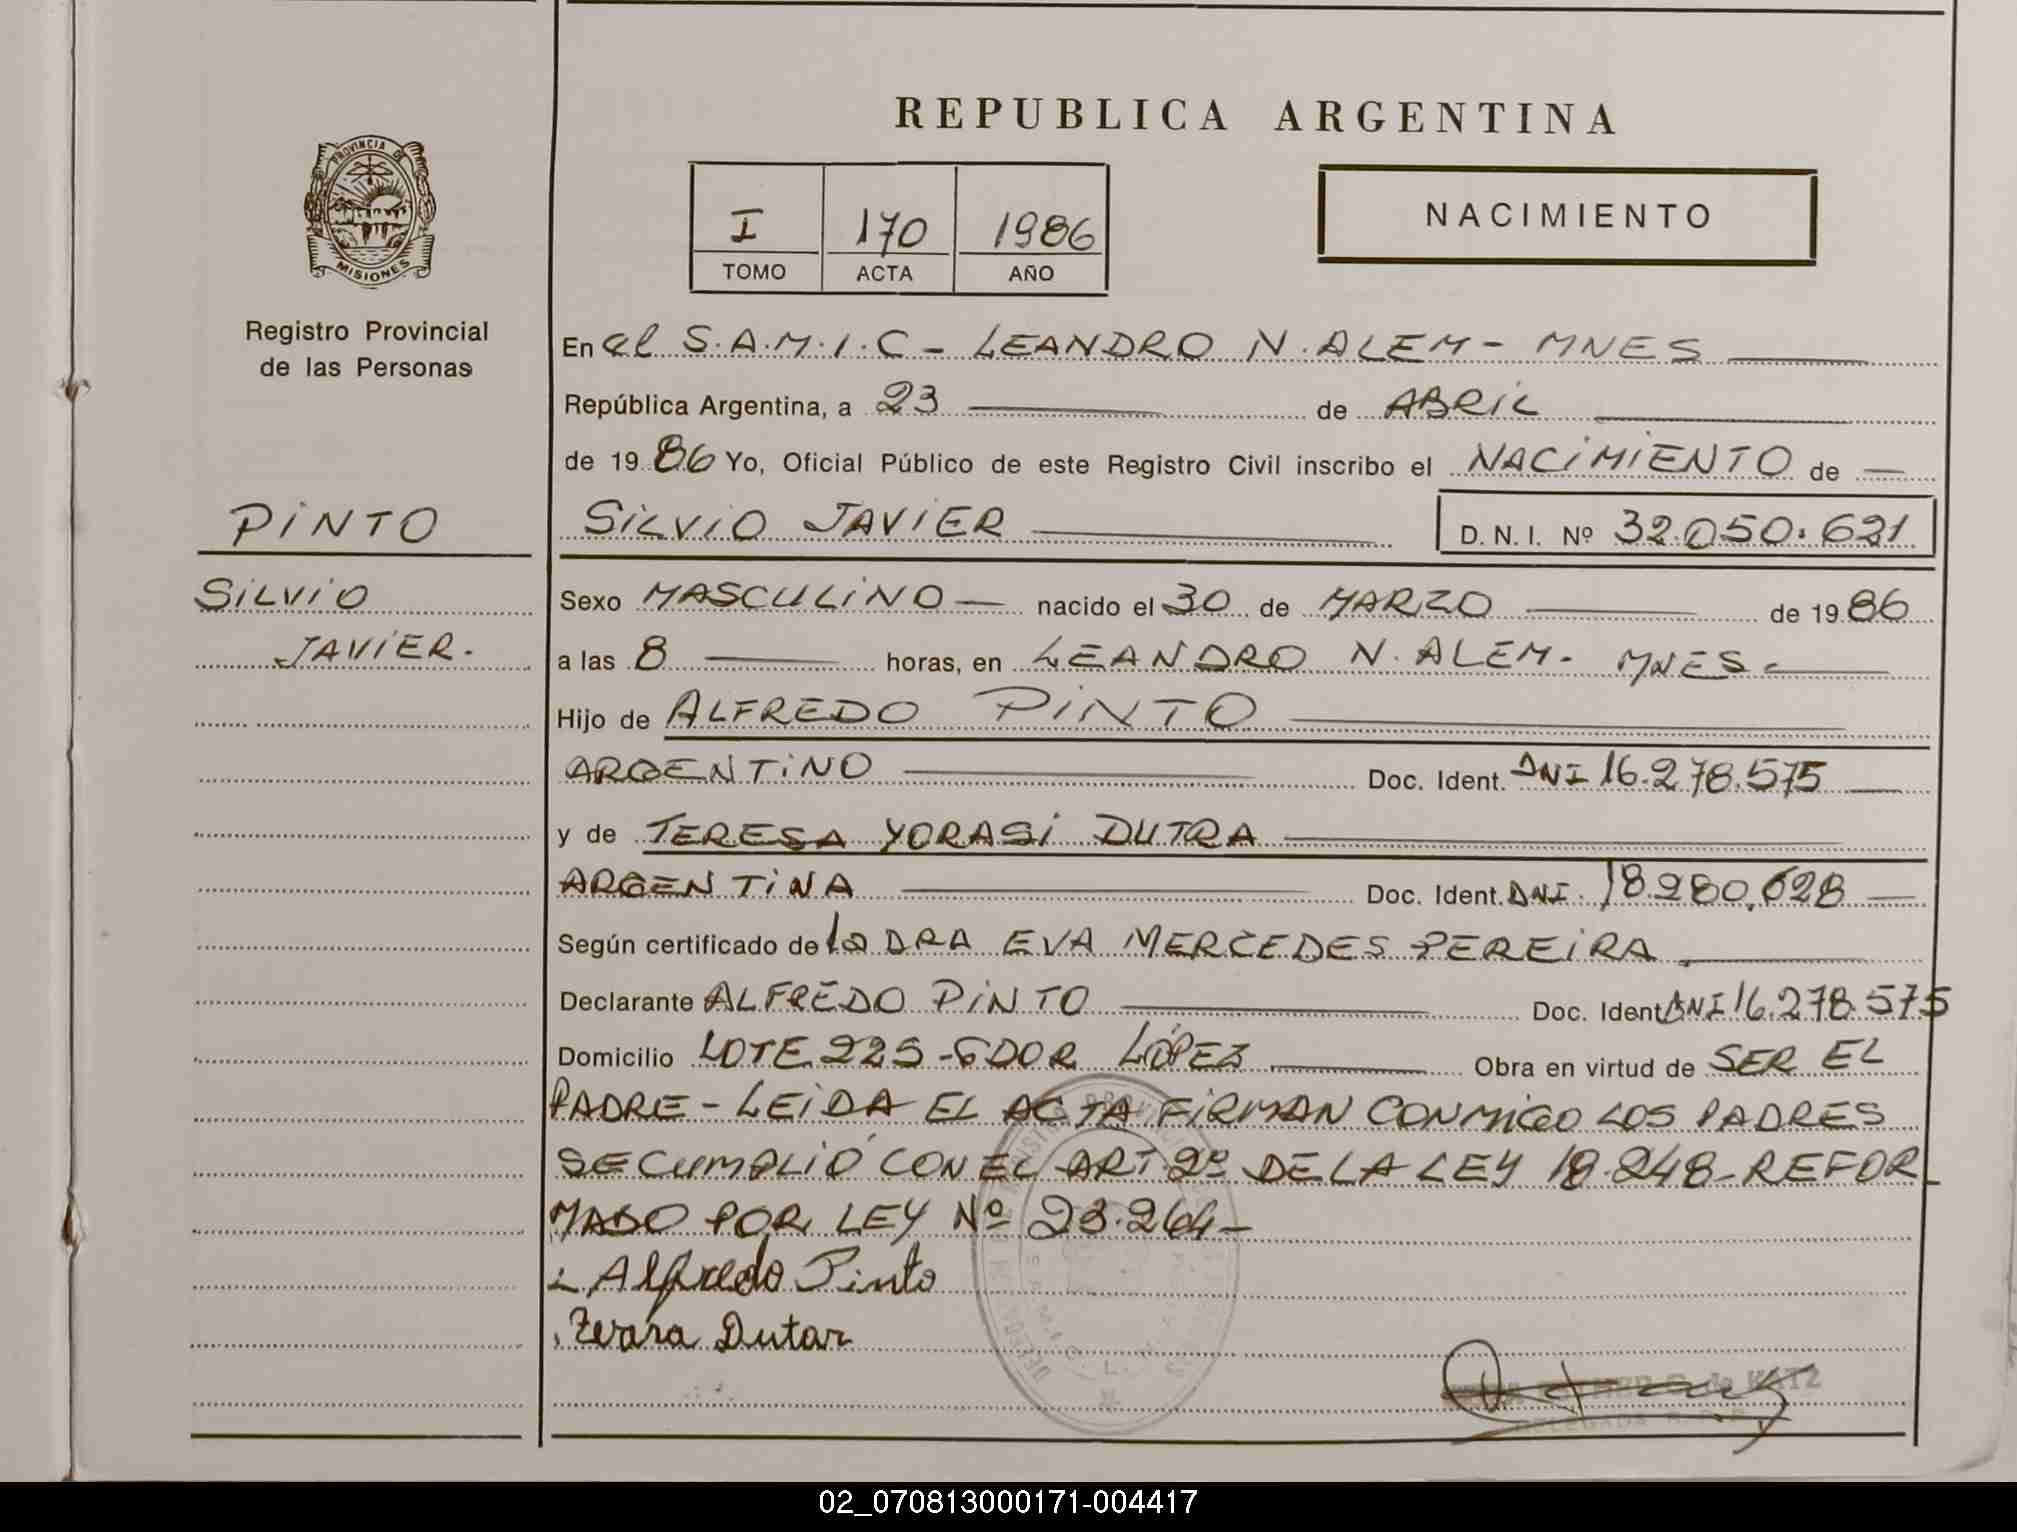 REPUBLICA ARGENTINA
PROVINCIA DE
MISIONES
Registro Provincial
de las Personas
I 170 1986
TOMO ACTA AÑO
NACIMIENTO
En el S.A.M.I.C - LEANDRO N. ALEM - MNES
República Argentina, a 23 de ABRIL
de 1986 Yo, Oficial Público de este Registro Civil inscribo el NACIMIENTO de
PINTO
SILVIO JAVIER D. N. I. Nº 32.050.621
SILVIO
JAVIER.
Sexo MASCULINO nacido el 30 de MARZO de 1986
a las 8 horas, en LEANDRO N. ALEM - MNES -
Hijo de ALFREDO PINTO
ARGENTINO Doc. Ident. DNI 16.278.575
y de TERESA YORASI DUTRA
ARGENTINA Doc. Ident. DNI 18.280.628
Según certificado de la DRA EVA MERCEDES PEREIRA
Declarante ALFREDO PINTO Doc. Ident. DNI 16.278.575
Domicilio LOTE 225 - GDOR LÓPEZ Obra en virtud de SER EL
PADRE - LEIDA EL ACTA FIRMAN CONMIGO LOS PADRES
SE CUMPLIÓ CON EL ART 2º DE LA LEY 18.248 - REFOR
MADO POR LEY Nº 23.264 -
Alfredo Pinto
Dutar
de KATZ
DELEGADA
02_070813000171-004417